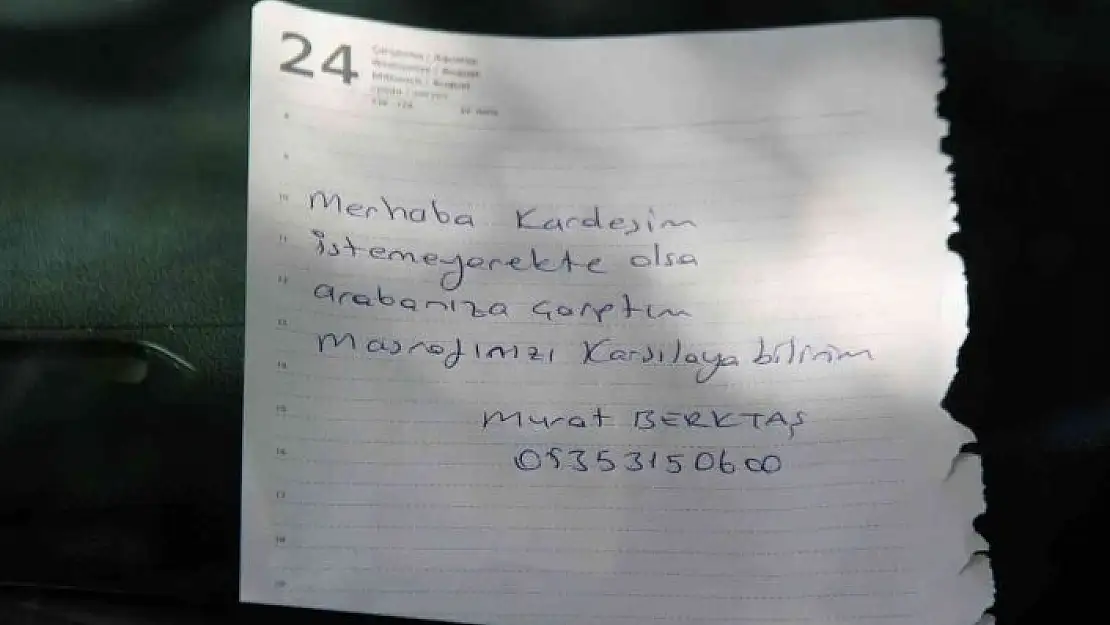 24
Çarşamba / Ağustos
Wednesday / August
Mittwoch / August
8
9
10
Merhaba Kardeşim
11
istemeyerekte olsa
12
arabanıza çarptım
13
Masrafınızı Karşılaya bilirim
14
15
Murat BERKTAŞ
16
05353150600
17
18
19